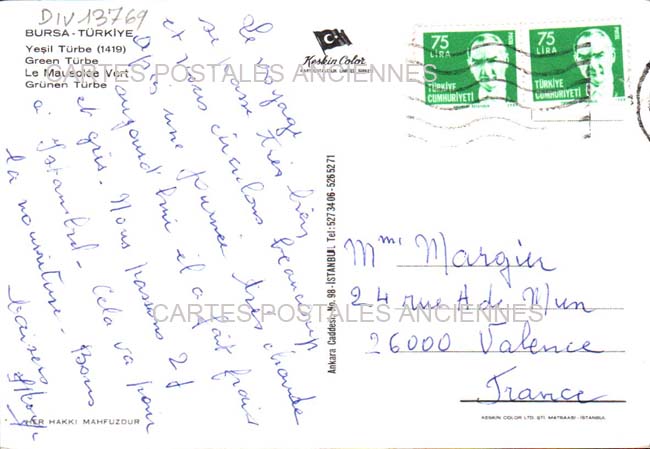 DIV13769
BURSA - TÜRKİYE
Yeşil Türbe (1419)
Green Türbe
Le Mausolée Vert
Grünen Türbe
Keskin Color
75 LİRA
TÜRKİYE CUMHURİYETİ
75 LİRA
TÜRKİYE CUMHURİYETİ
CARTES POSTALES ANCIENNES
Le voyage
se passe très bien
et nous circulons beaucoup
Après une journée très chaude
aujourd'hui il a fait frais
et gris. Nous passons 2 j
à Istanbul. Cela va pour
la nourriture. Bons
baisers
Ankara Caddesi No. 98 - İSTANBUL Tel: 5273406-5265271
Mme Margier
24 rue A de Mun
26000 Valence
France
CARTES POSTALES ANCIENNES
HER HAKKI MAHFUZDUR
KESKIN COLOR LTD. ŞTİ. MATBAASI - İSTANBUL